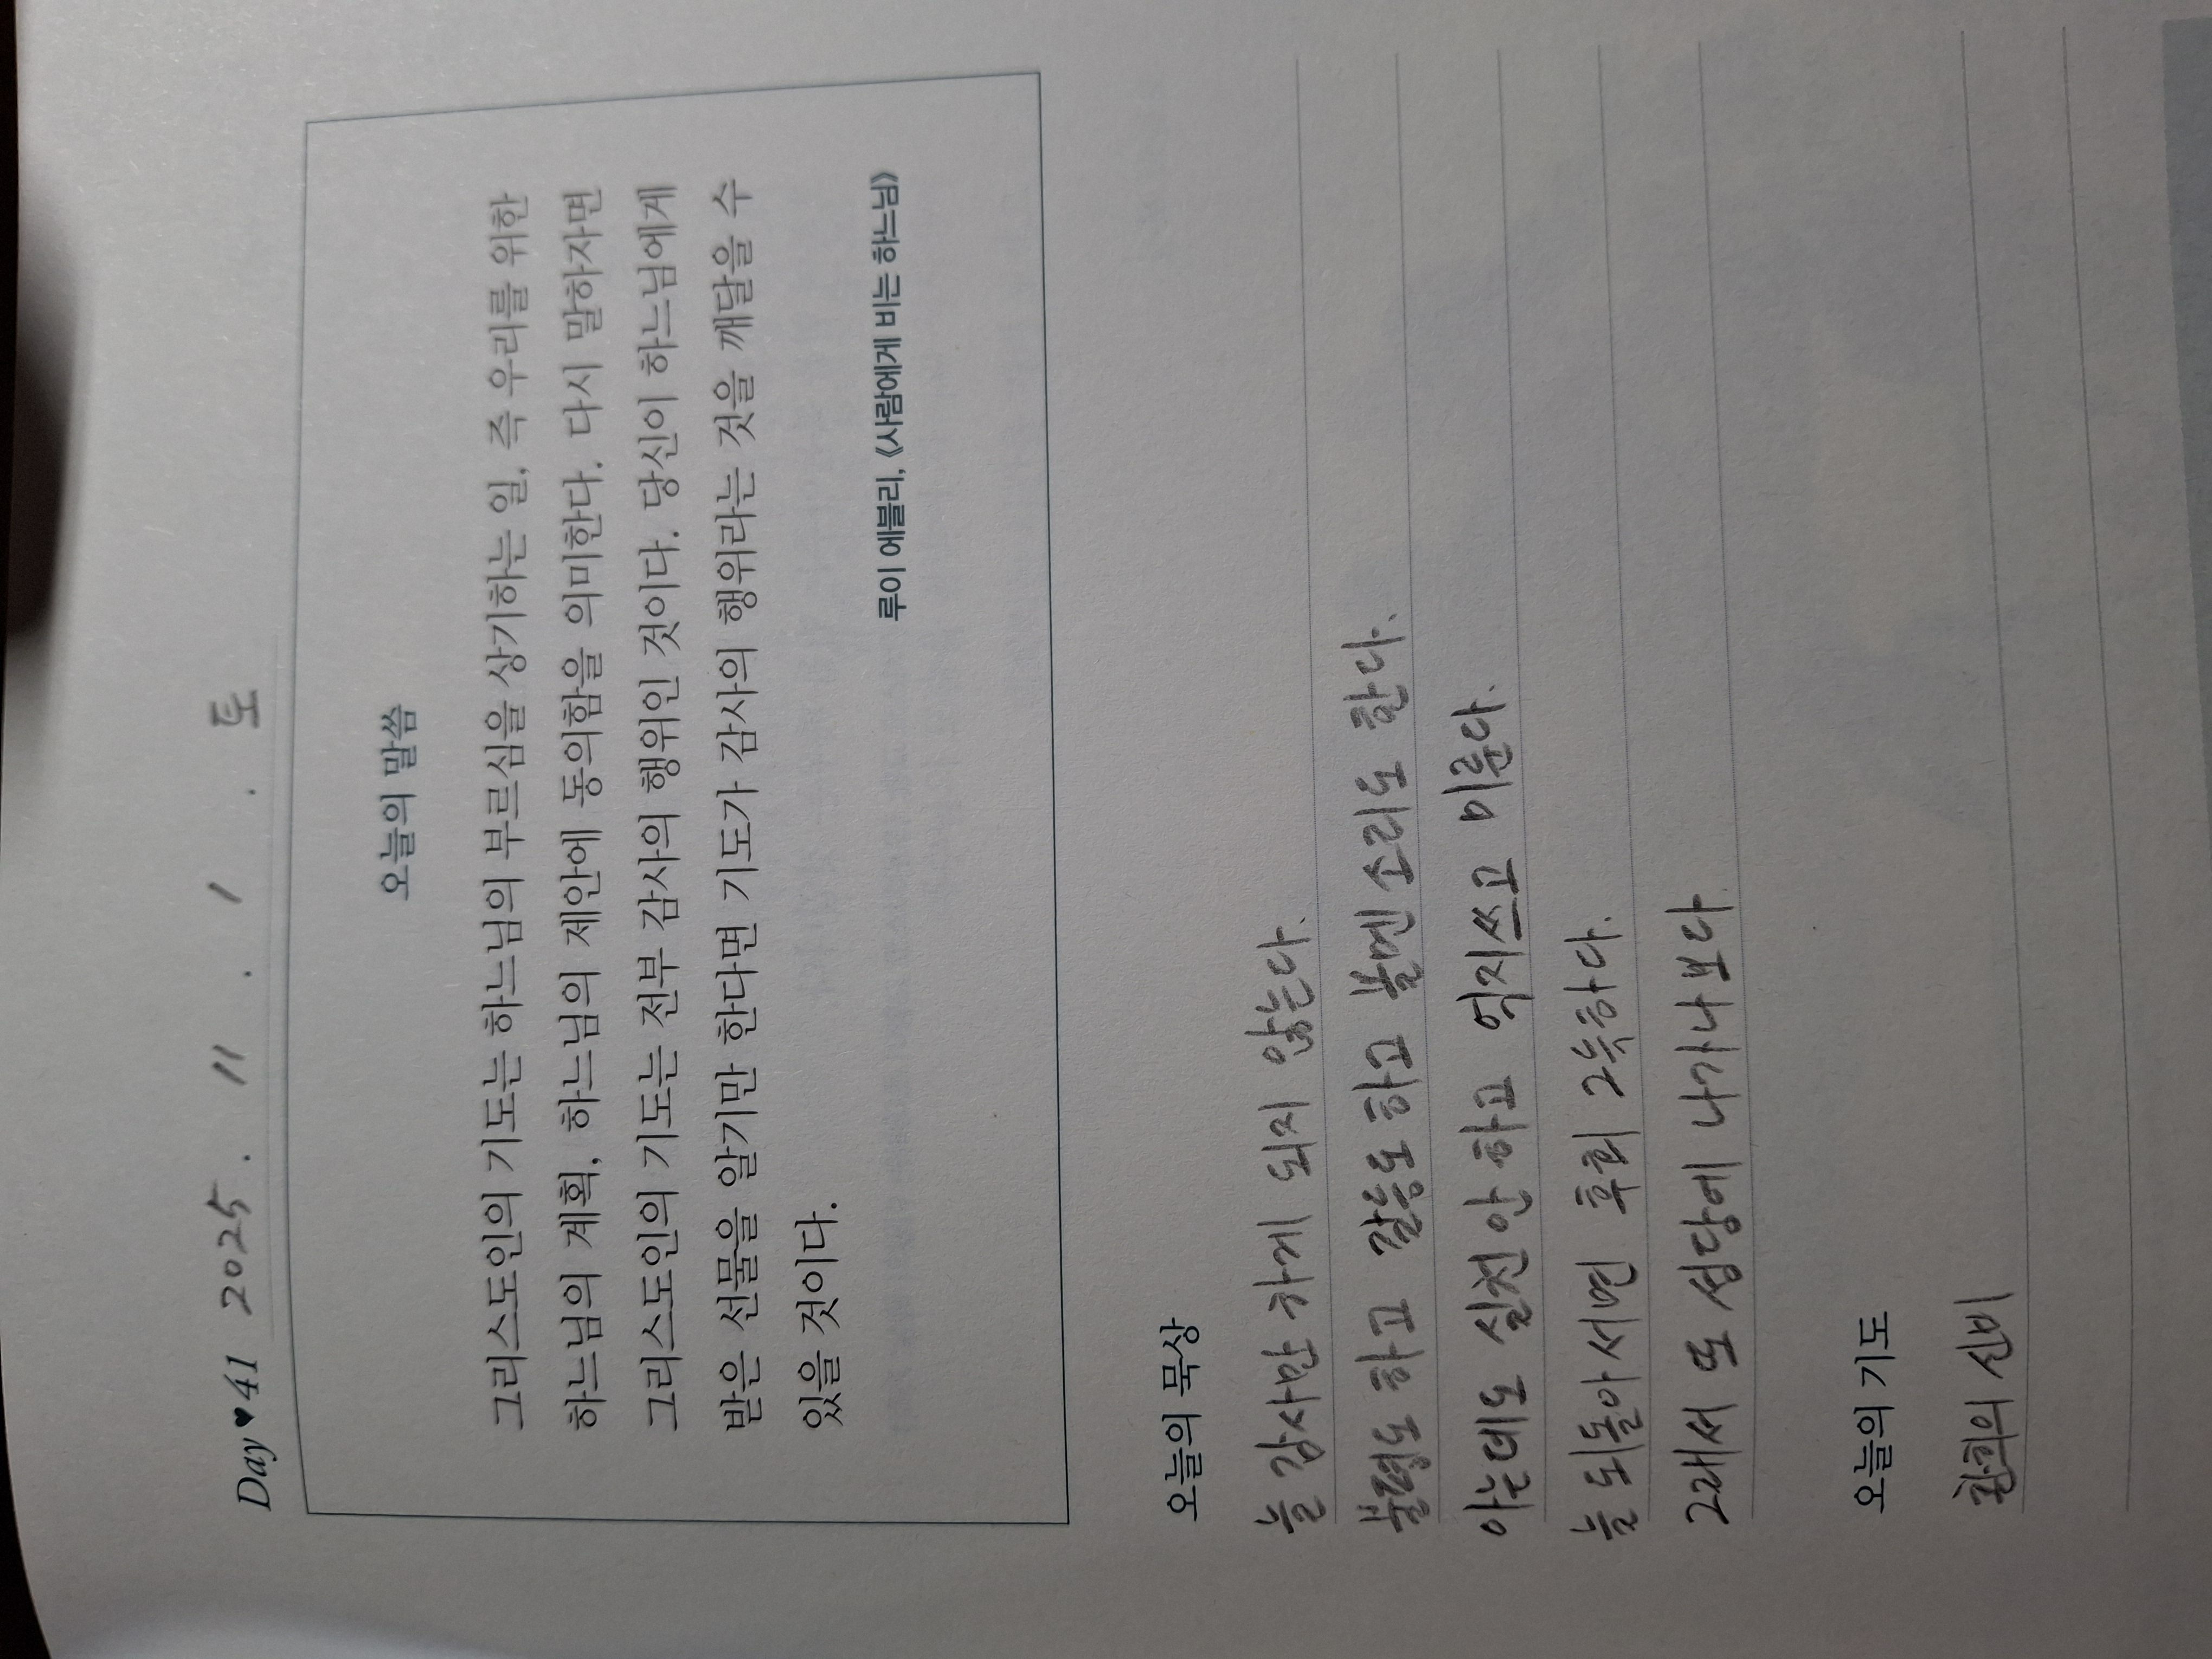 Day♥41 2025. 11. 1. 토
오늘의 말씀
그리스도인의 기도는 하느님의 부르심을 상기하는 일, 즉 우리를 위한
하느님의 계획, 하느님의 제안에 동의함을 의미한다. 다시 말하자면
그리스도인의 기도는 전부 감사의 행위인 것이다. 당신이 하느님에게
받은 선물을 알기만 한다면 기도가 감사의 행위라는 것을 깨달을 수
있을 것이다.
루이 에블리, 《사람에게 비는 하느님》
오늘의 묵상
늘 감사만 하게 되지 않는다.
불평도 하고 갈등도 하고 볼멘소리도 한다.
아는데도 실천 안 하고 억지쓰고 미룬다.
늘 되돌아 서면 후회 가득하다.
그래서 또 성당에 나가나 보다
오늘의 기도
환희의 신비